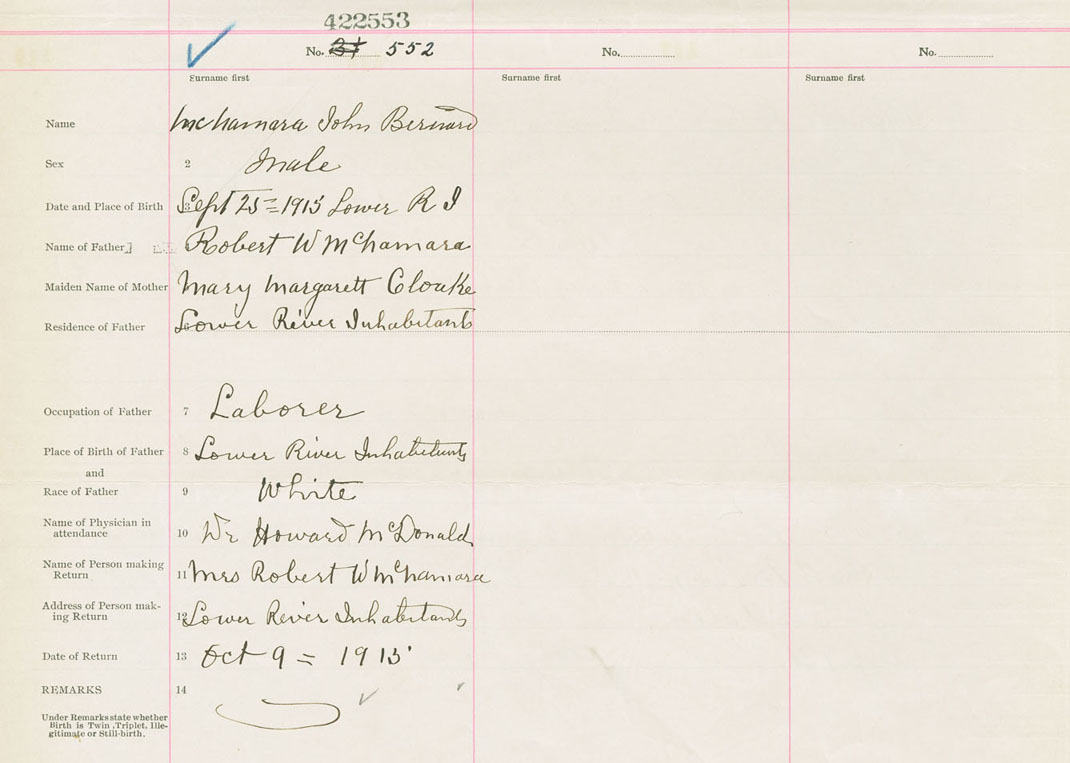 422553
No. 31 552 No. No.
Surname first Surname first Surname first
Name McNamara John Bernard
Sex 2 Male
Date and Place of Birth 3 Sept 25 = 1915 Lower R I
Name of Father Robert W McNamara
Maiden Name of Mother Mary Margarett Cloake
Residence of Father 6 Lower River Inhabitants
Occupation of Father 7 Laborer
Place of Birth of Father 8 Lower River Inhabitants
and
Race of Father 9 White
Name of Physician in
attendance 10 Dr Howard McDonald
Name of Person making
Return 11 Mrs Robert W McNamara
Address of Person mak-
ing Return 12 Lower River Inhabitants
Date of Return 13 Oct 9 = 1915
REMARKS 14
Under Remarks state whether
Birth is Twin, Triplet, Ille-
gitimate or Still-birth.